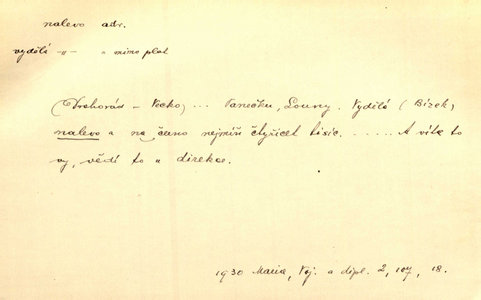 nalevo adv.
vydělá -"- a mimo plat
(Drchorád - Vecko) ... Panečku, Louny. Vydělá (Bizek)
nalevo a na černo nejmíň čtyřicet tisíc. ..... A víte to
vy, vědí to u direkce.
1930 Maria, Voj. a dipl. 2, 107, 18.